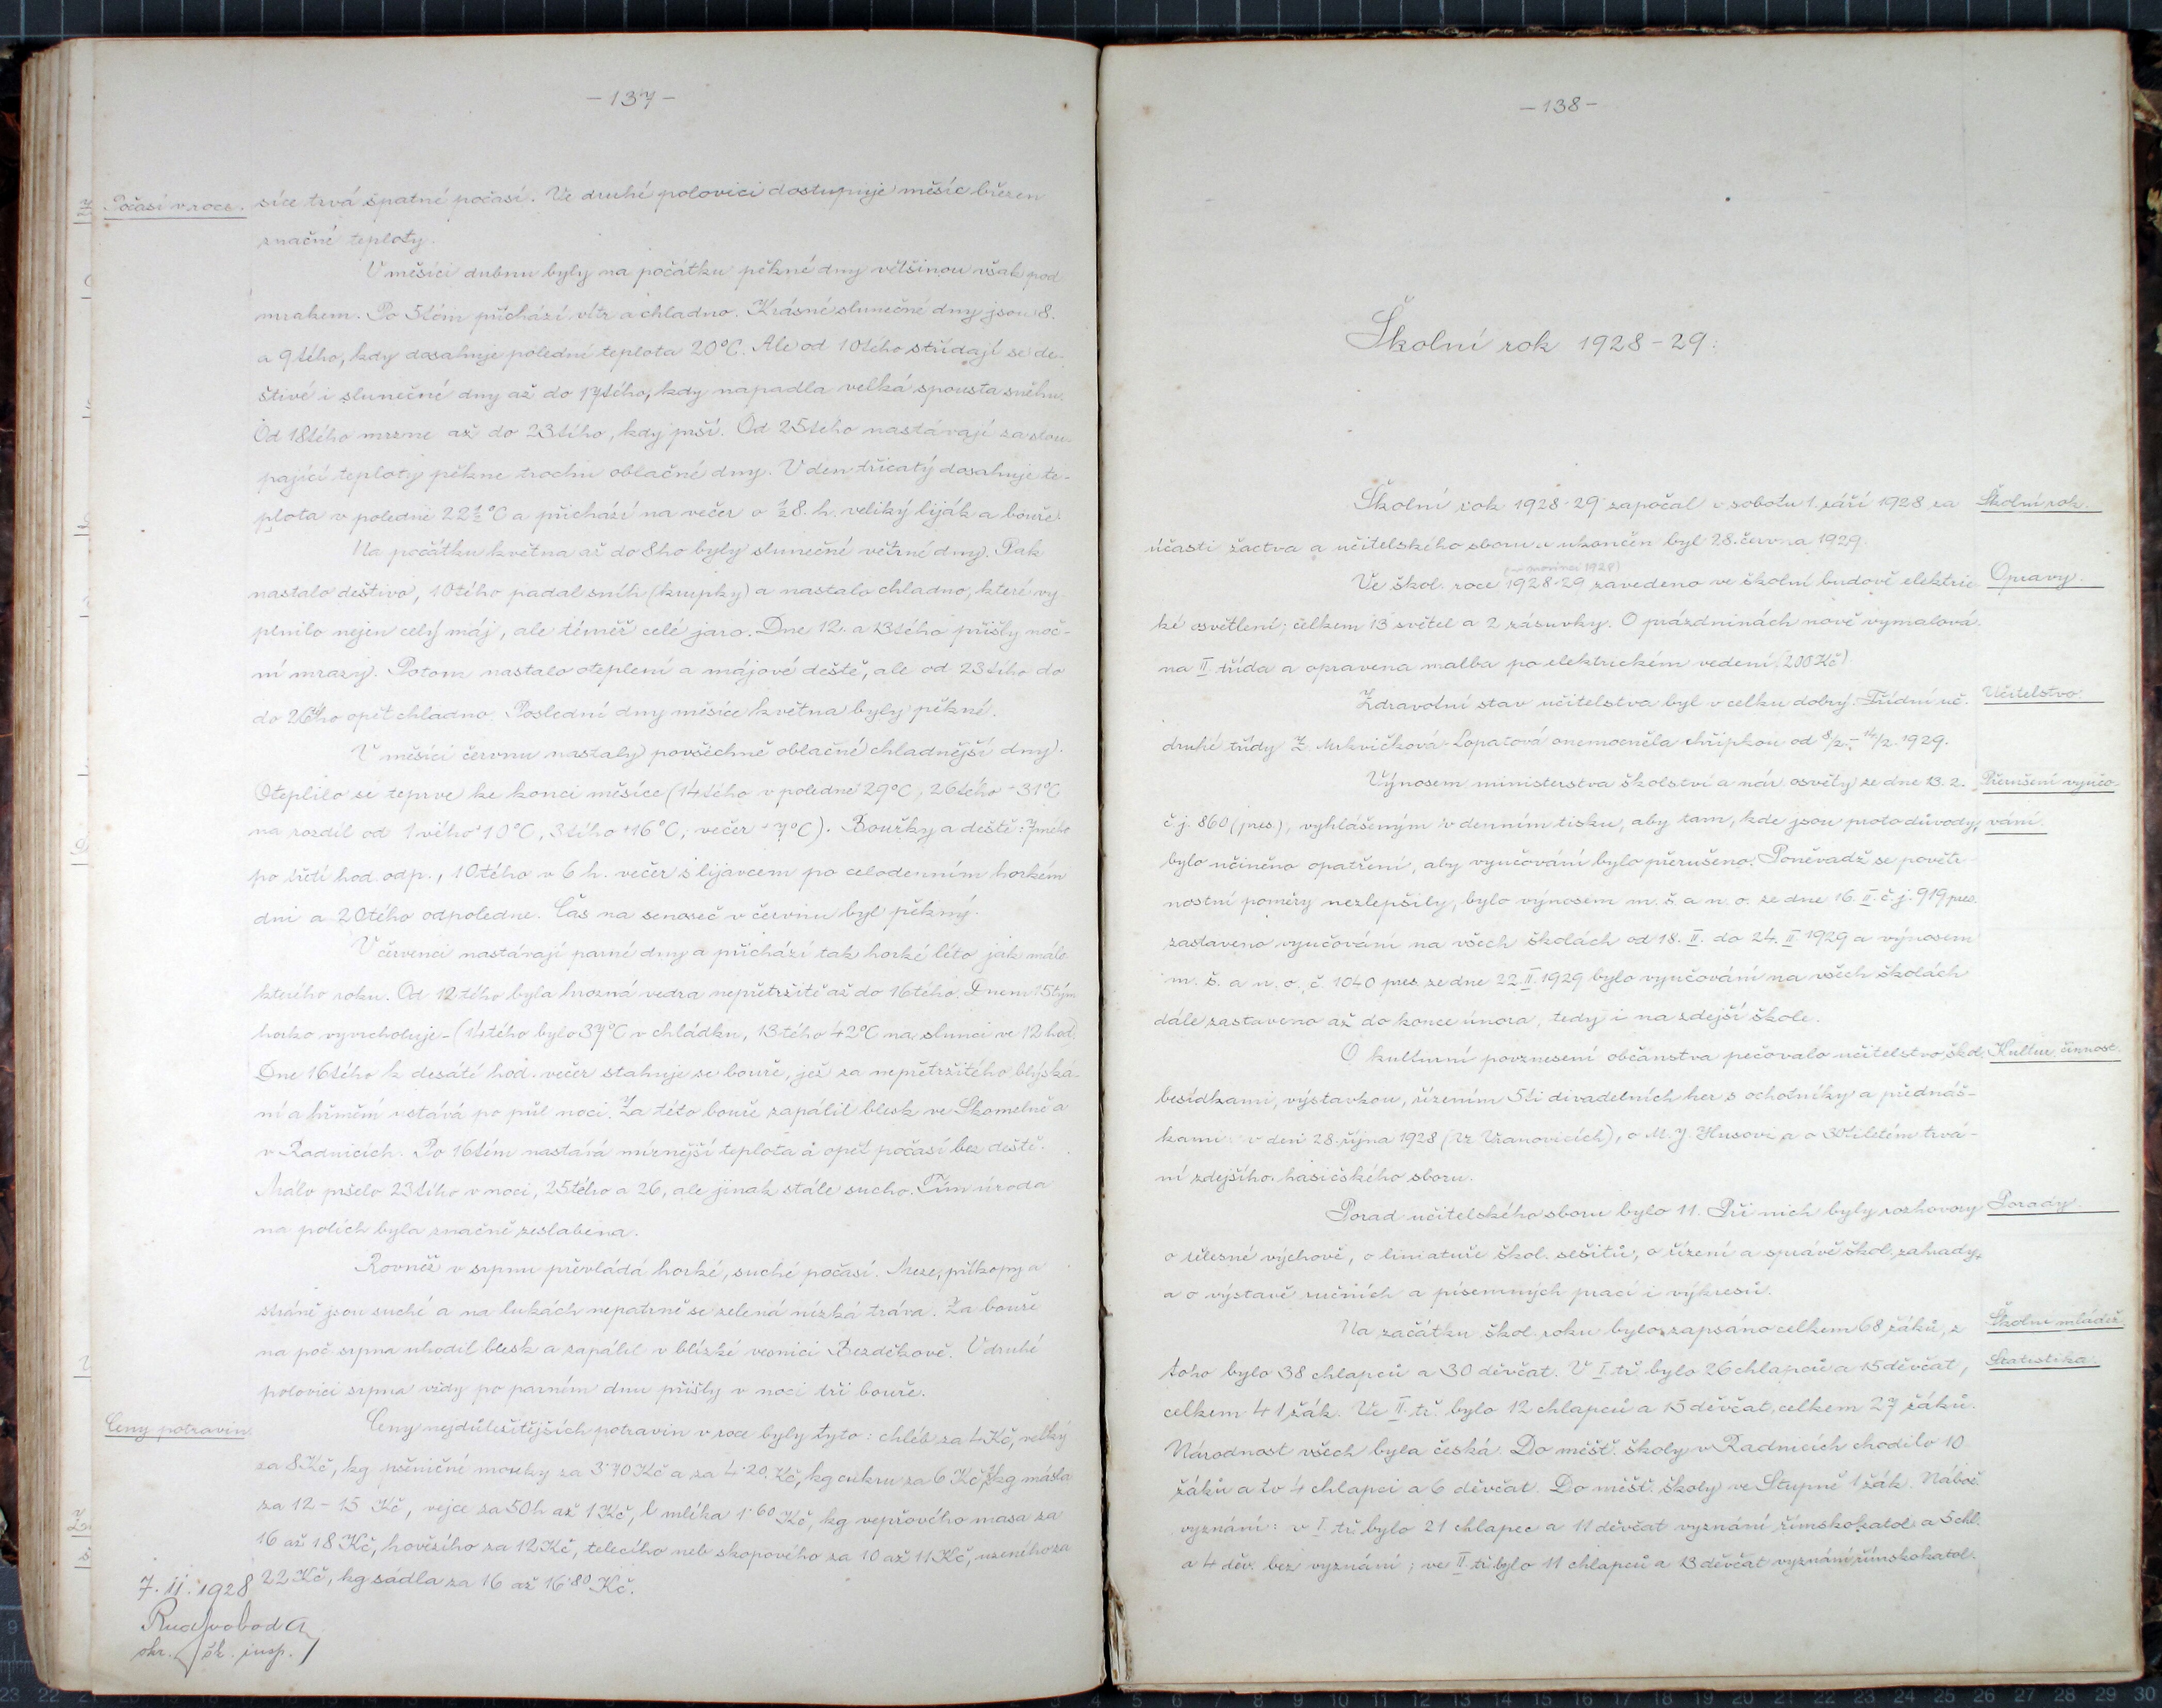 - 137 -
Počasí v roce.
síce trvá špatné počasí. Ve druhé polovici dostupuje měsíc březen
značné teploty.
V měsíci dubnu byly na počátku pěkné dny většinou však pod
mrakem. Po 5tém přichází vítr a chladno. Krásné slunečné dny jsou 8.
a 9tého, kdy dosahuje polední teplota 20°C. Ale od 10tého střídají se de-
štivé i slunečné dny až do 17tého, kdy napadla velká spousta sněhu.
Od 18tého mrzne až do 23tího, kdy prší. Od 25tého nastávají za stou-
pající teploty pěkne trochu oblačné dny. V den třicatý dosahuje te-
plota v poledne 22½°C a přichází na večer o ½8. h. veliký liják a bouře.
Na počátku května až do 8ho byly slunečné větrné dny. Pak
nastalo deštivo, 10tého padal sníh (krupky) a nastalo chladno, které vy-
plnilo nejen celý máj, ale téměř celé jaro. Dne 12. a 13tého přišly noč-
ní mrazy. Potom nastalo oteplení a májové deště, ale od 23tího do
do 26tého opět chladno. Poslední dny měsíce května byly pěkné.
V měsíci červnu nastaly povšechně oblačné chladnější dny.
Oteplilo se teprve ke konci měsíce (14tého v poledne 29°C, 26tého +31°C
na rozdíl od 1vého +10°C, 3tího +16°C, večer +7°C). Bouřky a deště: 7mého
po třetí hod. odp., 10tého v 6 h. večer s lijavcem po celodenním horkém
dni a 20tého odpoledne. Čas na senoseč v červnu byl pěkný.
V červenci nastávají parné dny a přichází tak horké léto jak málo
kterého roku. Od 12tého byla hrozná vedra nepřetržitě až do 16tého. Dnem 15tým
horko vyvrcholuje - (14tého bylo 37°C v chládku, 13tého 42°C na slunci ve 12 hod.
Dne 16tého k desáté hod. večer stahuje se bouře, jež za nepřetržitého blýská-
ní a hřmění ustává po půl noci. Za této bouře zapálil blesk ve Skomelně a
v Radnicích. Po 16tém nastává mírnější teplota a opět počasí bez deště.
Málo pršelo 23tího v noci, 25tého a 26, ale jinak stále sucho. Tím úroda
na polích byla značně zeslabena.
Rovněž v srpnu převládá horké, suché počasí. Meze, příkopy a
stráně jsou suché a na lukách nepatrně se zelená nízká tráva. Za bouře
na poč. srpna uhodil blesk a zapálil v blízké vesnici Bezděkově. V druhé
polovici srpna vždy po parném dnu přišly v noci tři bouře.
Ceny potravin.
Ceny nejdůležitějších potravin v roce byly tyto: chléb za 4 Kč, velký
za 8 Kč, kg pšeničné mouky za 3·70 Kč a za 4·20 Kč, kg cukru za 6 Kč, ½kg másla
za 12 - 15 Kč, vejce za 50 h až 1 Kč, l mléka 1·60 Kč, kg vepřového masa za
16 až 18 Kč, hovězího za 12 Kč, telecího neb skopového za 10 až 11 Kč, uzeného za
22 Kč, kg sádla za 16 až 16·80 Kč.
7. II. 1928
Rud Svoboda
okr. šk. insp.
- 138 -
Školní rok 1928 - 29:
Školní rok 1928-29 započal v sobotu 1. září 1928 za
Školní rok.
účasti žactva a učitelského sboru a ukončen byl 28. června 1929.
(v prosinci 1928)
Ve škol. roce 1928-29 zavedeno ve školní budově elektric-
Opravy.
ké osvětlení; celkem 13 světel a 2 zásuvky. O prázdninách nově vymalová-
na II. třída a opravena malba po elektrickém vedení. (200 Kč)
Zdravotní stav učitelstva byl v celku dobrý. Třídní uč.
Učitelstvo.
druhé třídy Z. Mrkvičková-Lopatová onemocněla chřipkou od 8/2.- 14/2. 1929.
Výnosem ministerstva školství a nár. osvěty ze dne 13. 2.
Přerušení vyučo-
č. j. 860 (pres.), vyhlášeným v denním tisku, aby tam, kde jsou proto důvody,
vání.
bylo učiněno opatření, aby vyučování bylo přerušeno. Poněvadž se povětr-
nostní poměry nezlepšily, bylo výnosem m. š. a n. o. ze dne 16. II. č. j. 919 pres.
zastaveno vyučování na všech školách od 18. II. do 24. II. 1929 a výnosem
m. š. a n. o. č. 1040 pres. ze dne 22. II. 1929 bylo vyučování na všech školách
dále zastaveno až do konce února, tedy i na zdejší škole.
O kulturní povznesení občanstva pečovalo učitelstvo škol.
Kultur. činnost.
besídkami, výstavkou, řízením 5ti divadelních her s ochotníky a přednáš-
kami: v den 28. října 1928 (Ve Vranovicích), o M. J. Husovi a o 30tiletém trvá-
ní zdejšího hasičského sboru.
Porad učitelského sboru bylo 11. Při nich byly rozhovory
Porady.
o tělesné výchově, o liniatuře škol. sešitů, o řízení a správě škol. zahrady,
a o výstavě ručních a písemných prací i výkresů.
Na začátku škol. roku bylo zapsáno celkem 68 žáků, z
Školní mládež.
toho bylo 38 chlapců a 30 děvčat. V I. tř. bylo 26 chlapců a 15 děvčat,
Statistika.
celkem 41 žák. Ve II. tř. bylo 12 chlapců a 15 děvčat, celkem 27 žáků.
Národnost všech byla česká. Do měšť. školy v Radnicích chodilo 10
žáků a to 4 chlapci a 6 děvčat. Do měšť. školy ve Stupně 1 žák. Nábož.
vyznání: v I. tř. bylo 21 chlapec a 11 děvčat vyznání římskokatol. a 5 chl.
a 4 děv. bez vyznání; ve II. tř. bylo 11 chlapců a 13 děvčat vyznání římskokatol.